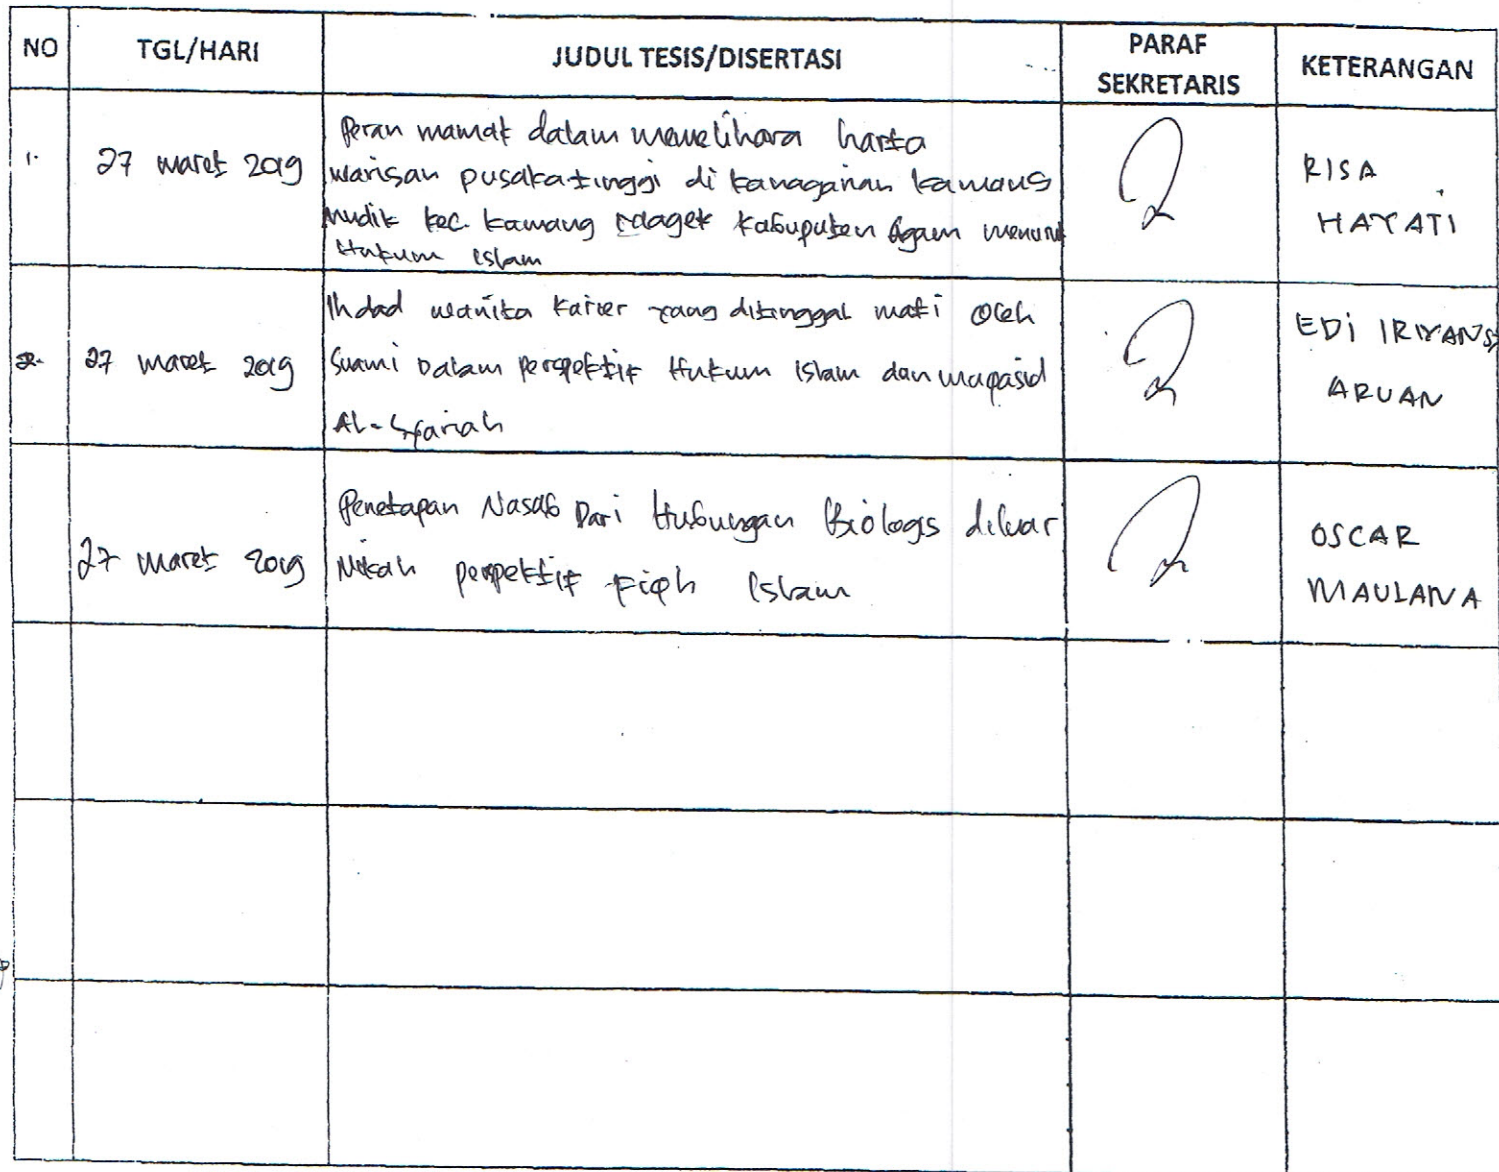 NO TGL/HARI JUDUL TESIS/DISERTASI PARAF SEKRETARIS KETERANGAN
1. 27 maret 2019
Peran mamak dalam memelihara harta
warisan pusaka tinggi di kanagarian kamang
mudik kec. kamang magek kabupaten Agam menurut
Hukum Islam
RISA
HAYATI
2. 27 maret 2019
Ihdad wanita karier yang ditinggal mati oleh
suami Dalam perspektif Hukum Islam dan maqasid
Al-Syariah
EDI IRIYANSY
ARUAN
27 maret 2019
Penetapan Nasab Dari Hubungan Biologis diluar
Nikah perpektif Fiqh Islam
OSCAR
MAULANA